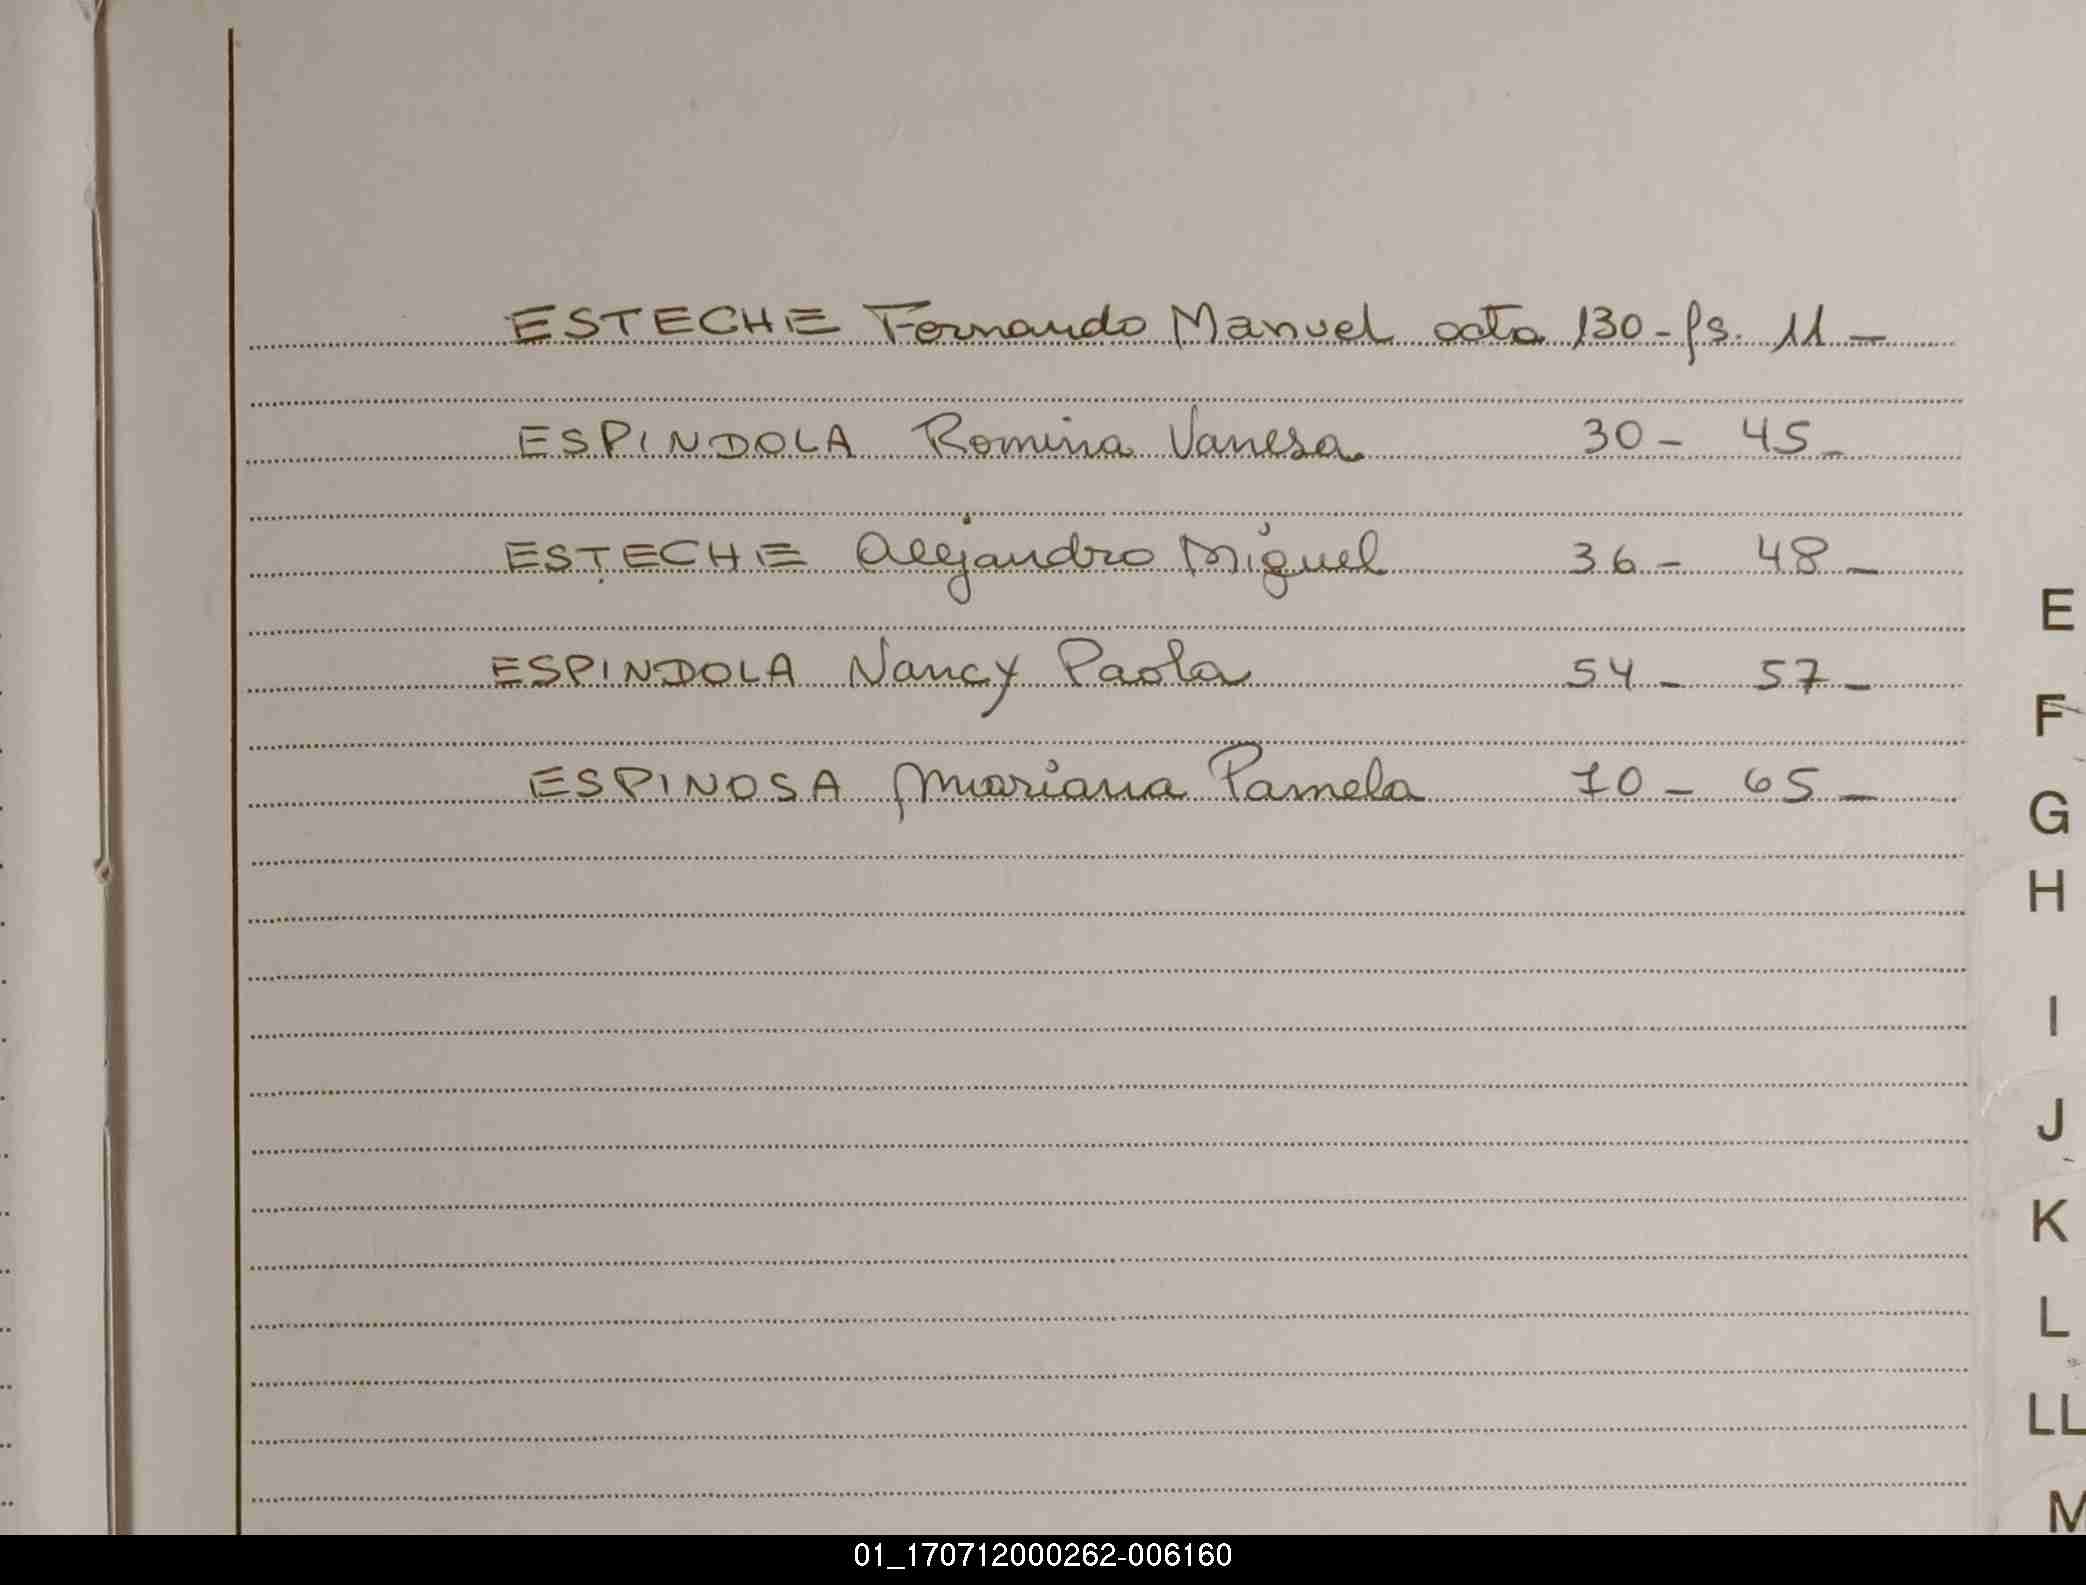 ESTECHE Fernando Manuel acta 130 - fs. 11 -
ESPINDOLA Romina Vanesa 30 - 45 -
ESTECHE Alejandro Miguel 36 - 48 -
ESPINDOLA Nancy Paola 54 - 57 -
ESPINOSA Mariana Pamela 70 - 65 -
E
F
G
H
I
J
K
L
LL
M
01_170712000262-006160